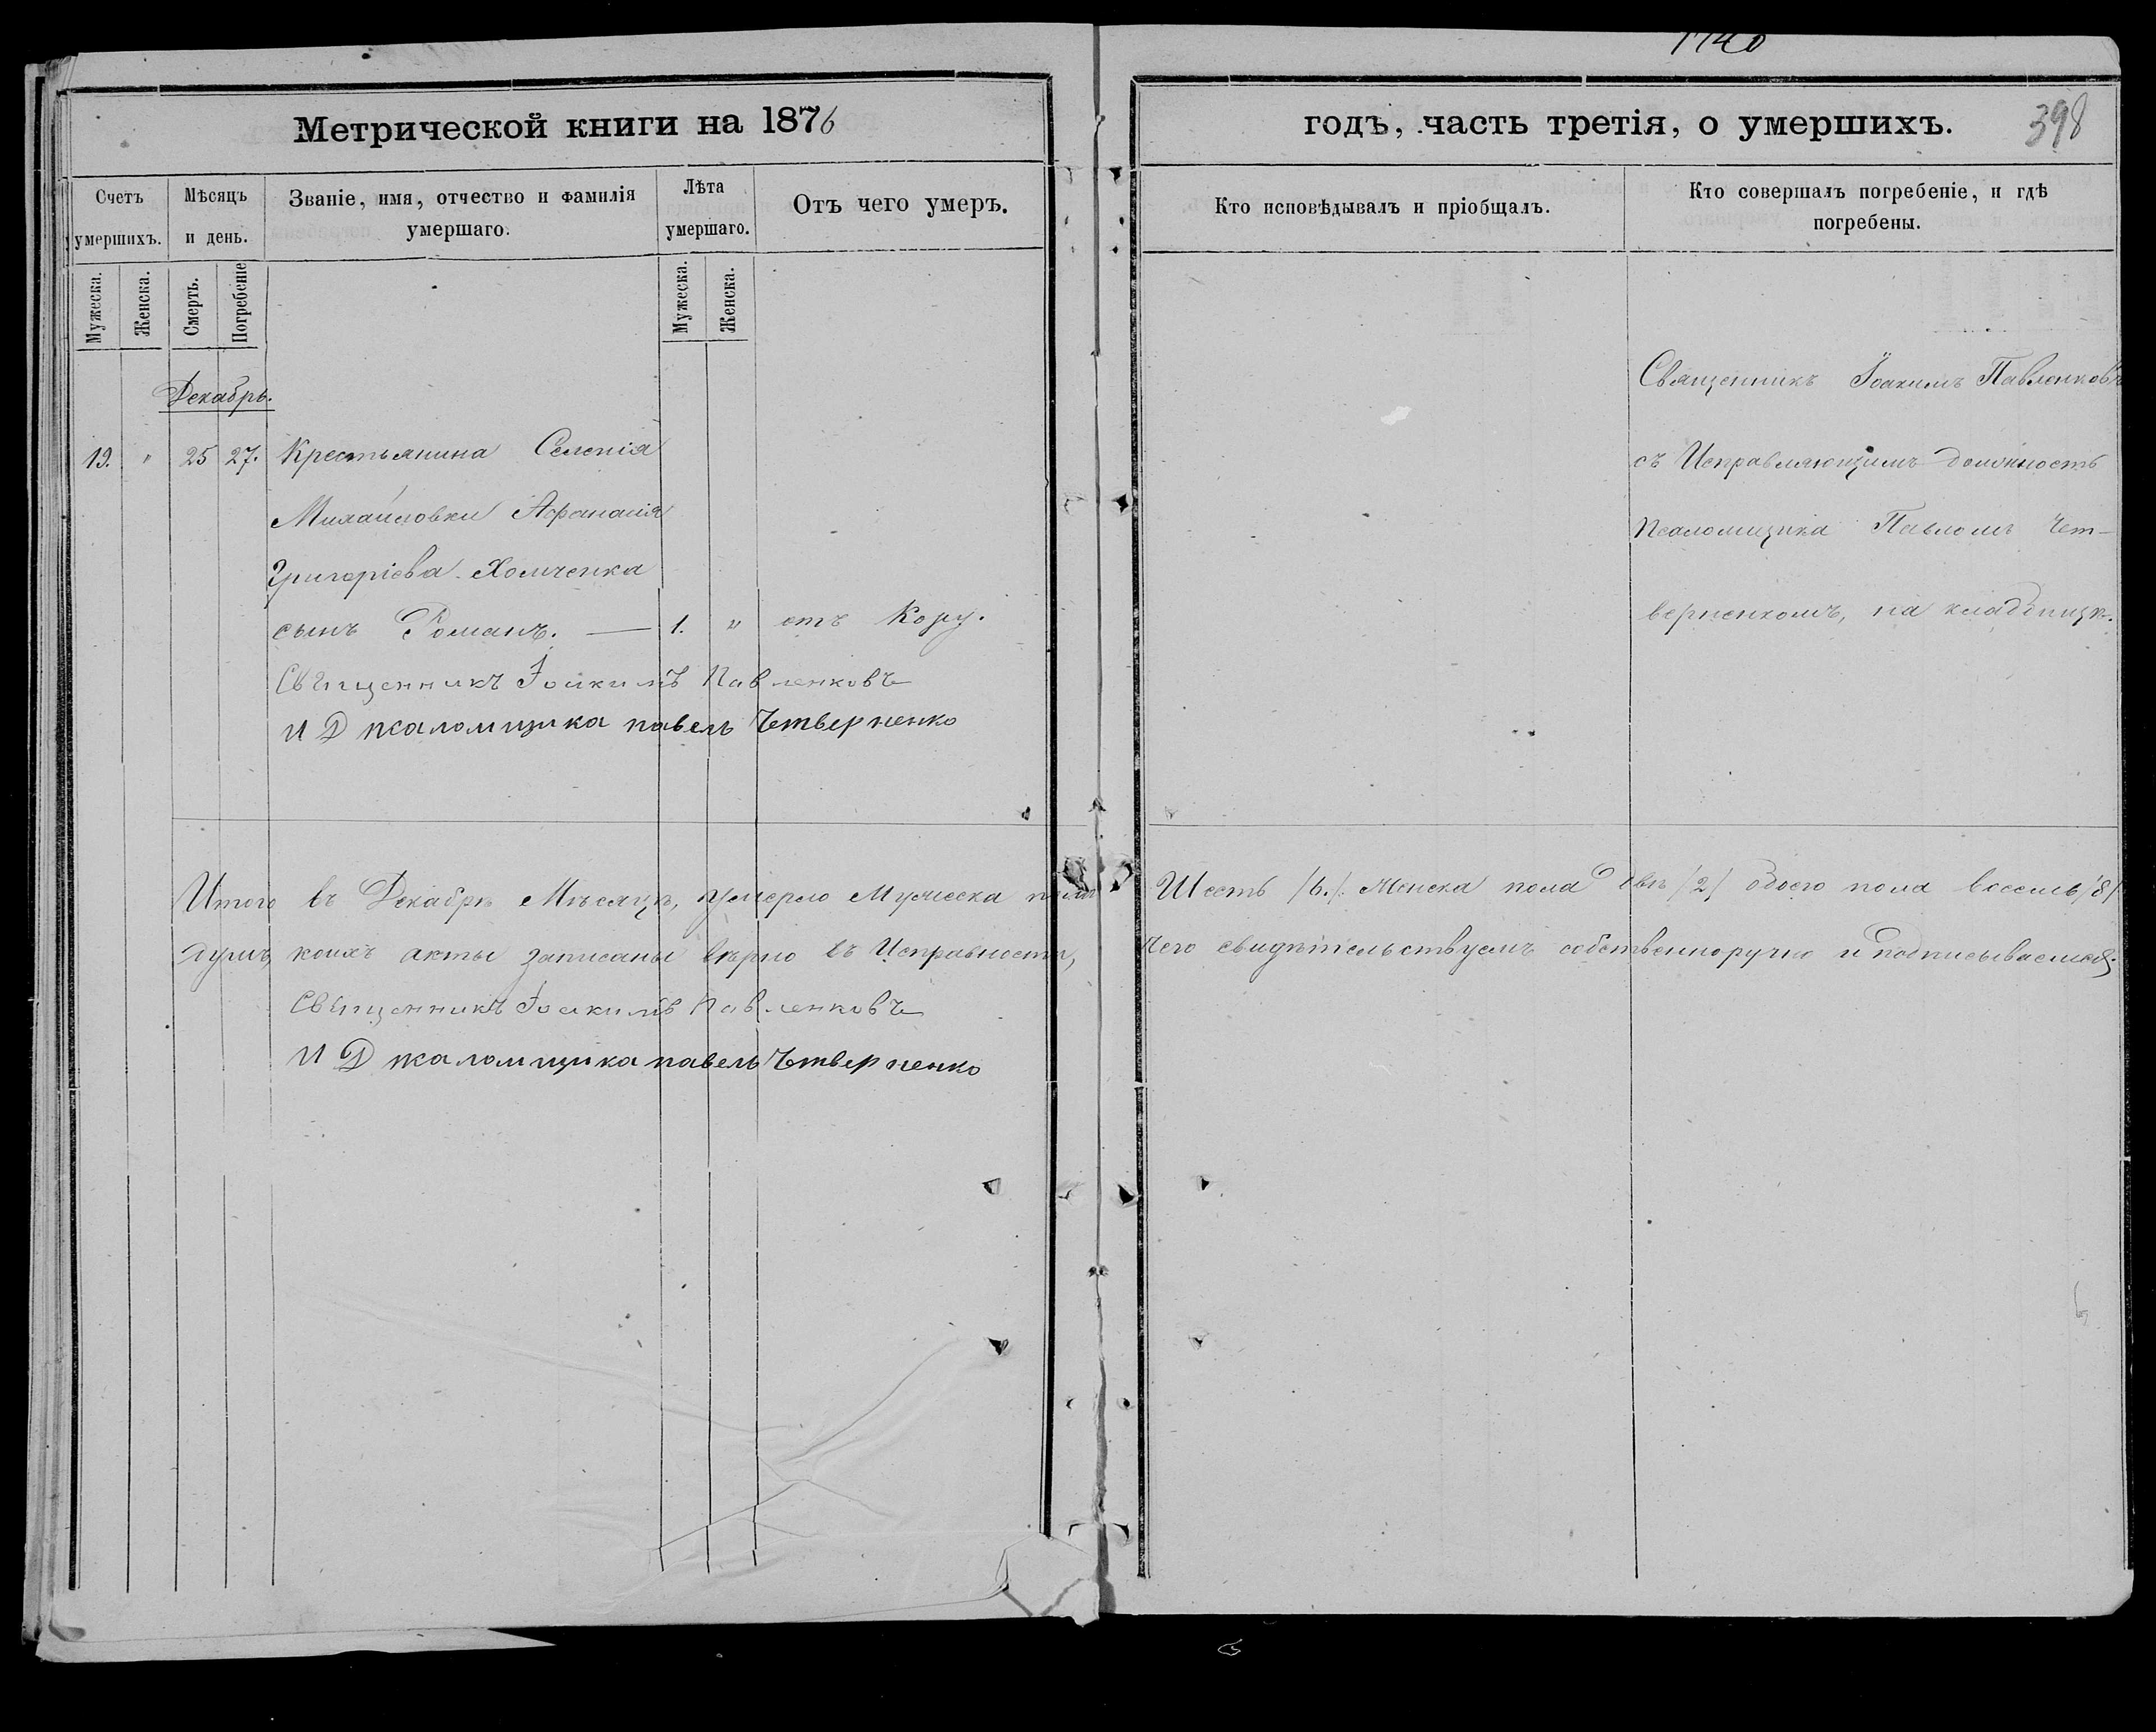 1140
Метрической книги на 1876
годъ, часть третія, о умершихъ.
398
Счетъ умершихъ.
Мѣсяцъ и день.
Званіе, имя, отчество и фамилія умершаго.
Лѣта умершаго.
Отъ чего умеръ.
Кто исповѣдывалъ и пріобщалъ.
Кто совершалъ погребеніе, и гдѣ погребены.
Мужеска.
Женска.
Смерть.
Погребеніе
Мужеска.
Женска.
Декабрь.
19. " 25 27. Крестьянина Селенія
Михайловки Афанасія
Григоріева Хомченка
сынъ Романъ. — 1. " отъ Кору.
Священникъ Іоакимъ Павленковъ
И Д псаломщика павелъ Четверненко
Священникъ Іоакимъ Павленковъ
съ Исправляющимъ должность
Псаломщика Павломъ Чет-
верненкомъ, на кладбищѣ.
Итого въ Декабрѣ Мѣсяцѣ, умерло Мужеска пола Шесть /6./ Женска пола двѣ /2/ обоего пола восемь /8/
душъ, коихъ акты записаны вѣрно въ Исправности, Чего свидѣтельствуемъ собственноручно и подписываемся.
Священникъ Іоакимъ Павленковъ
И Д псаломщика павелъ Четверненко